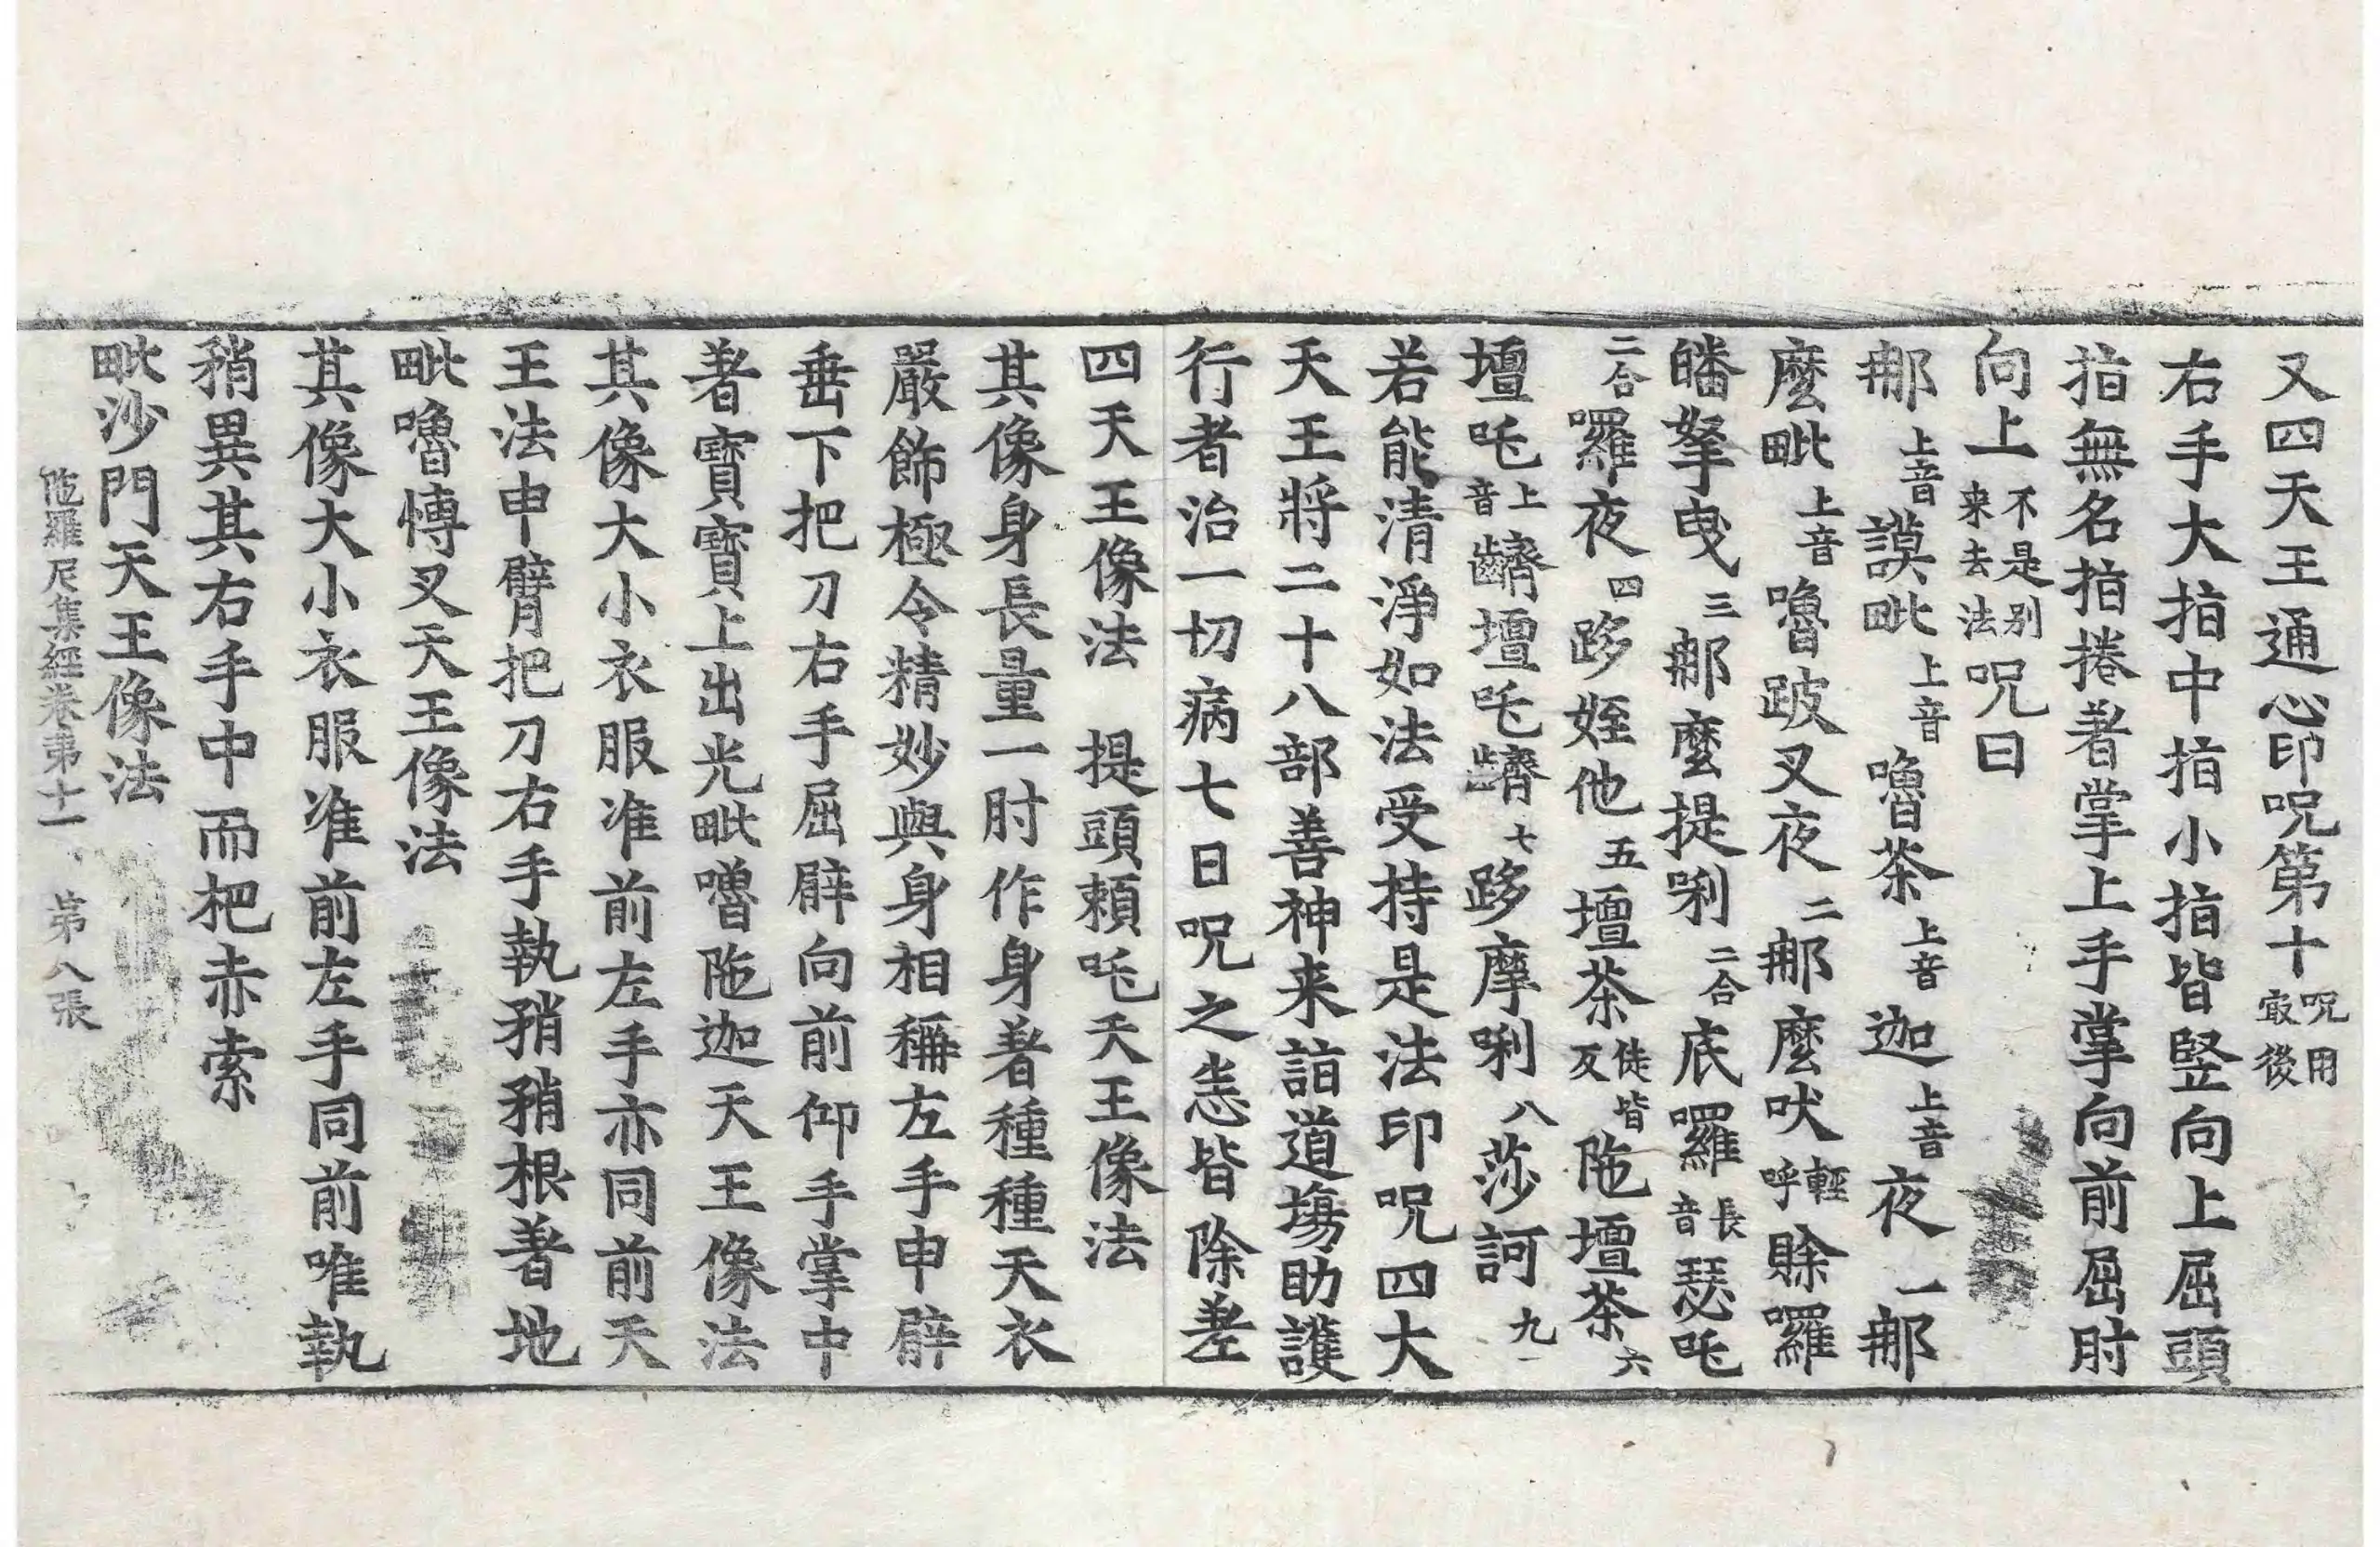 又四天王通心印呪第十呪用㝡後
右手大指中指小指皆竪向上屈頭
指無名指捲著掌上手掌向前屈肘
向上不是別来去法呪曰
那上音謨毗上音嚕茶上音迦上音夜一那
麼毗上音嚕跛叉夜二那麼吠輕呼賒囉
皤拏曳三那麼提唎二合底囉長音瑟吒
二合囉夜四跢姪他五壇茶徒皆反陁壇茶六
壇吒上音齵壇吒齵七跢摩唎八莎訶九
若能清淨如法受持是法印呪四大
天王將二十八部善神来詣道塲助護
行者治一切病七日呪之恙皆除差
四天王像法　提頭頼吒天王像法
其像身長量一肘作身著種種天衣
嚴飾極令精妙與身相稱左手申臂
垂下把刀右手屈臂向前仰手掌中
著寶寶上出光毗嚕陁迦天王像法
其像大小衣服准前左手亦同前天
王法申臂把刀右手執矟矟根著地
毗嚕愽叉天王像法
其像大小衣服准前左手同前唯執
矟異其右手中而把赤索
毗沙門天王像法
陁羅尼集經卷第十一　第八張